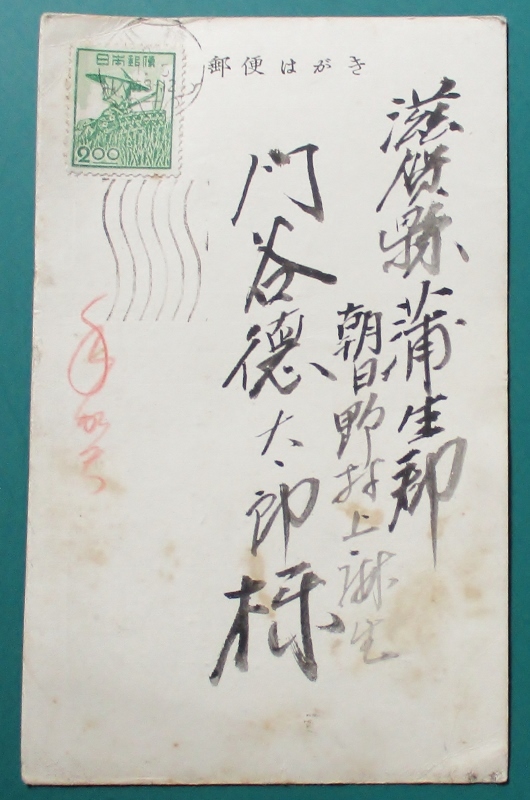 郵便はがき
日本郵便
2.00
滋賀縣蒲生郡
朝日野村上麻生
門谷德太郎様